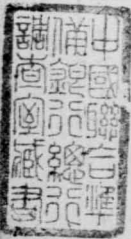 中國聯合準
備銀行總行
調查室藏書